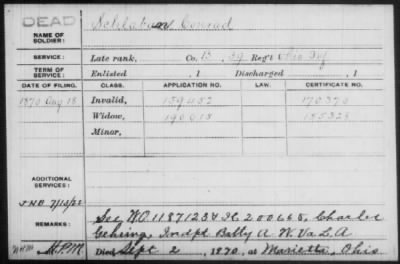 DEAD
NAME OF SOLDIER: Schlabam Conrad
SERVICE: Late rank, Co. B, 39 Reg't Ohio Inf
TERM OF SERVICE: Enlisted , 1 Discharged , 1
DATE OF FILING. CLASS. APPLICATION NO. LAW. CERTIFICATE NO.
1870 Aug 18 Invalid, 159452 170370
Widow, 190013 155328
Minor,
ADDITIONAL SERVICES:
REMARKS: See WO 1187123 & IC 200665, Charles
Gehring, Indpt Batty A. W. Va L A
HPM Died Sept 2, 1870, at Marietta, Ohio